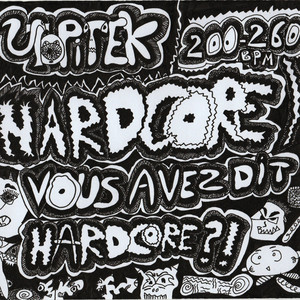 200-260
BPM
HARDCORE
VOUS AVEZ DiT
HARDCORE?!